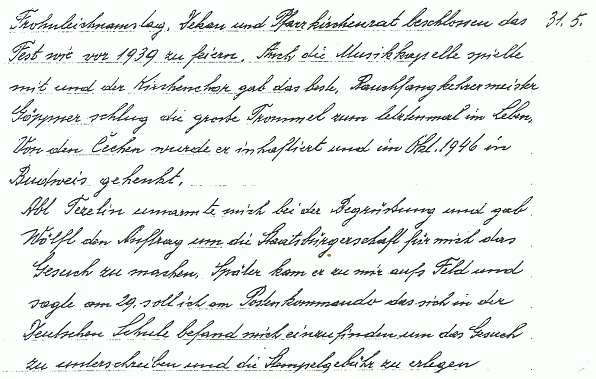 Frohnleichnamstag, Dekan und Pfarrkirchenrat beschlossen das 31.5.
Fest wie vor 1939 zu feiern. Auch die Musikkapelle spielte
mit und der Kirchenchor gab das beste, Rauchfangkehrermeister
Göppner schlug die große Trommel zum letztenmal im Leben,
Von den Čechen wurde er inhaftiert und im Okt. 1946 in
Budweis gehenkt.
Abt Terelin umarmte mich bei der Begrüßung und gab
Wölfl den Auftrag um die Staatsbürgerschaft für mich das
Gesuch zu machen. Später kam er zu mir aufs Feld und
sagte am 29. soll ich am Postenkommando das sich in der
Deutschen Schule befand mich einzufinden um das Gesuch
zu unterschreiben und die Stempelgebühr zu erlegen